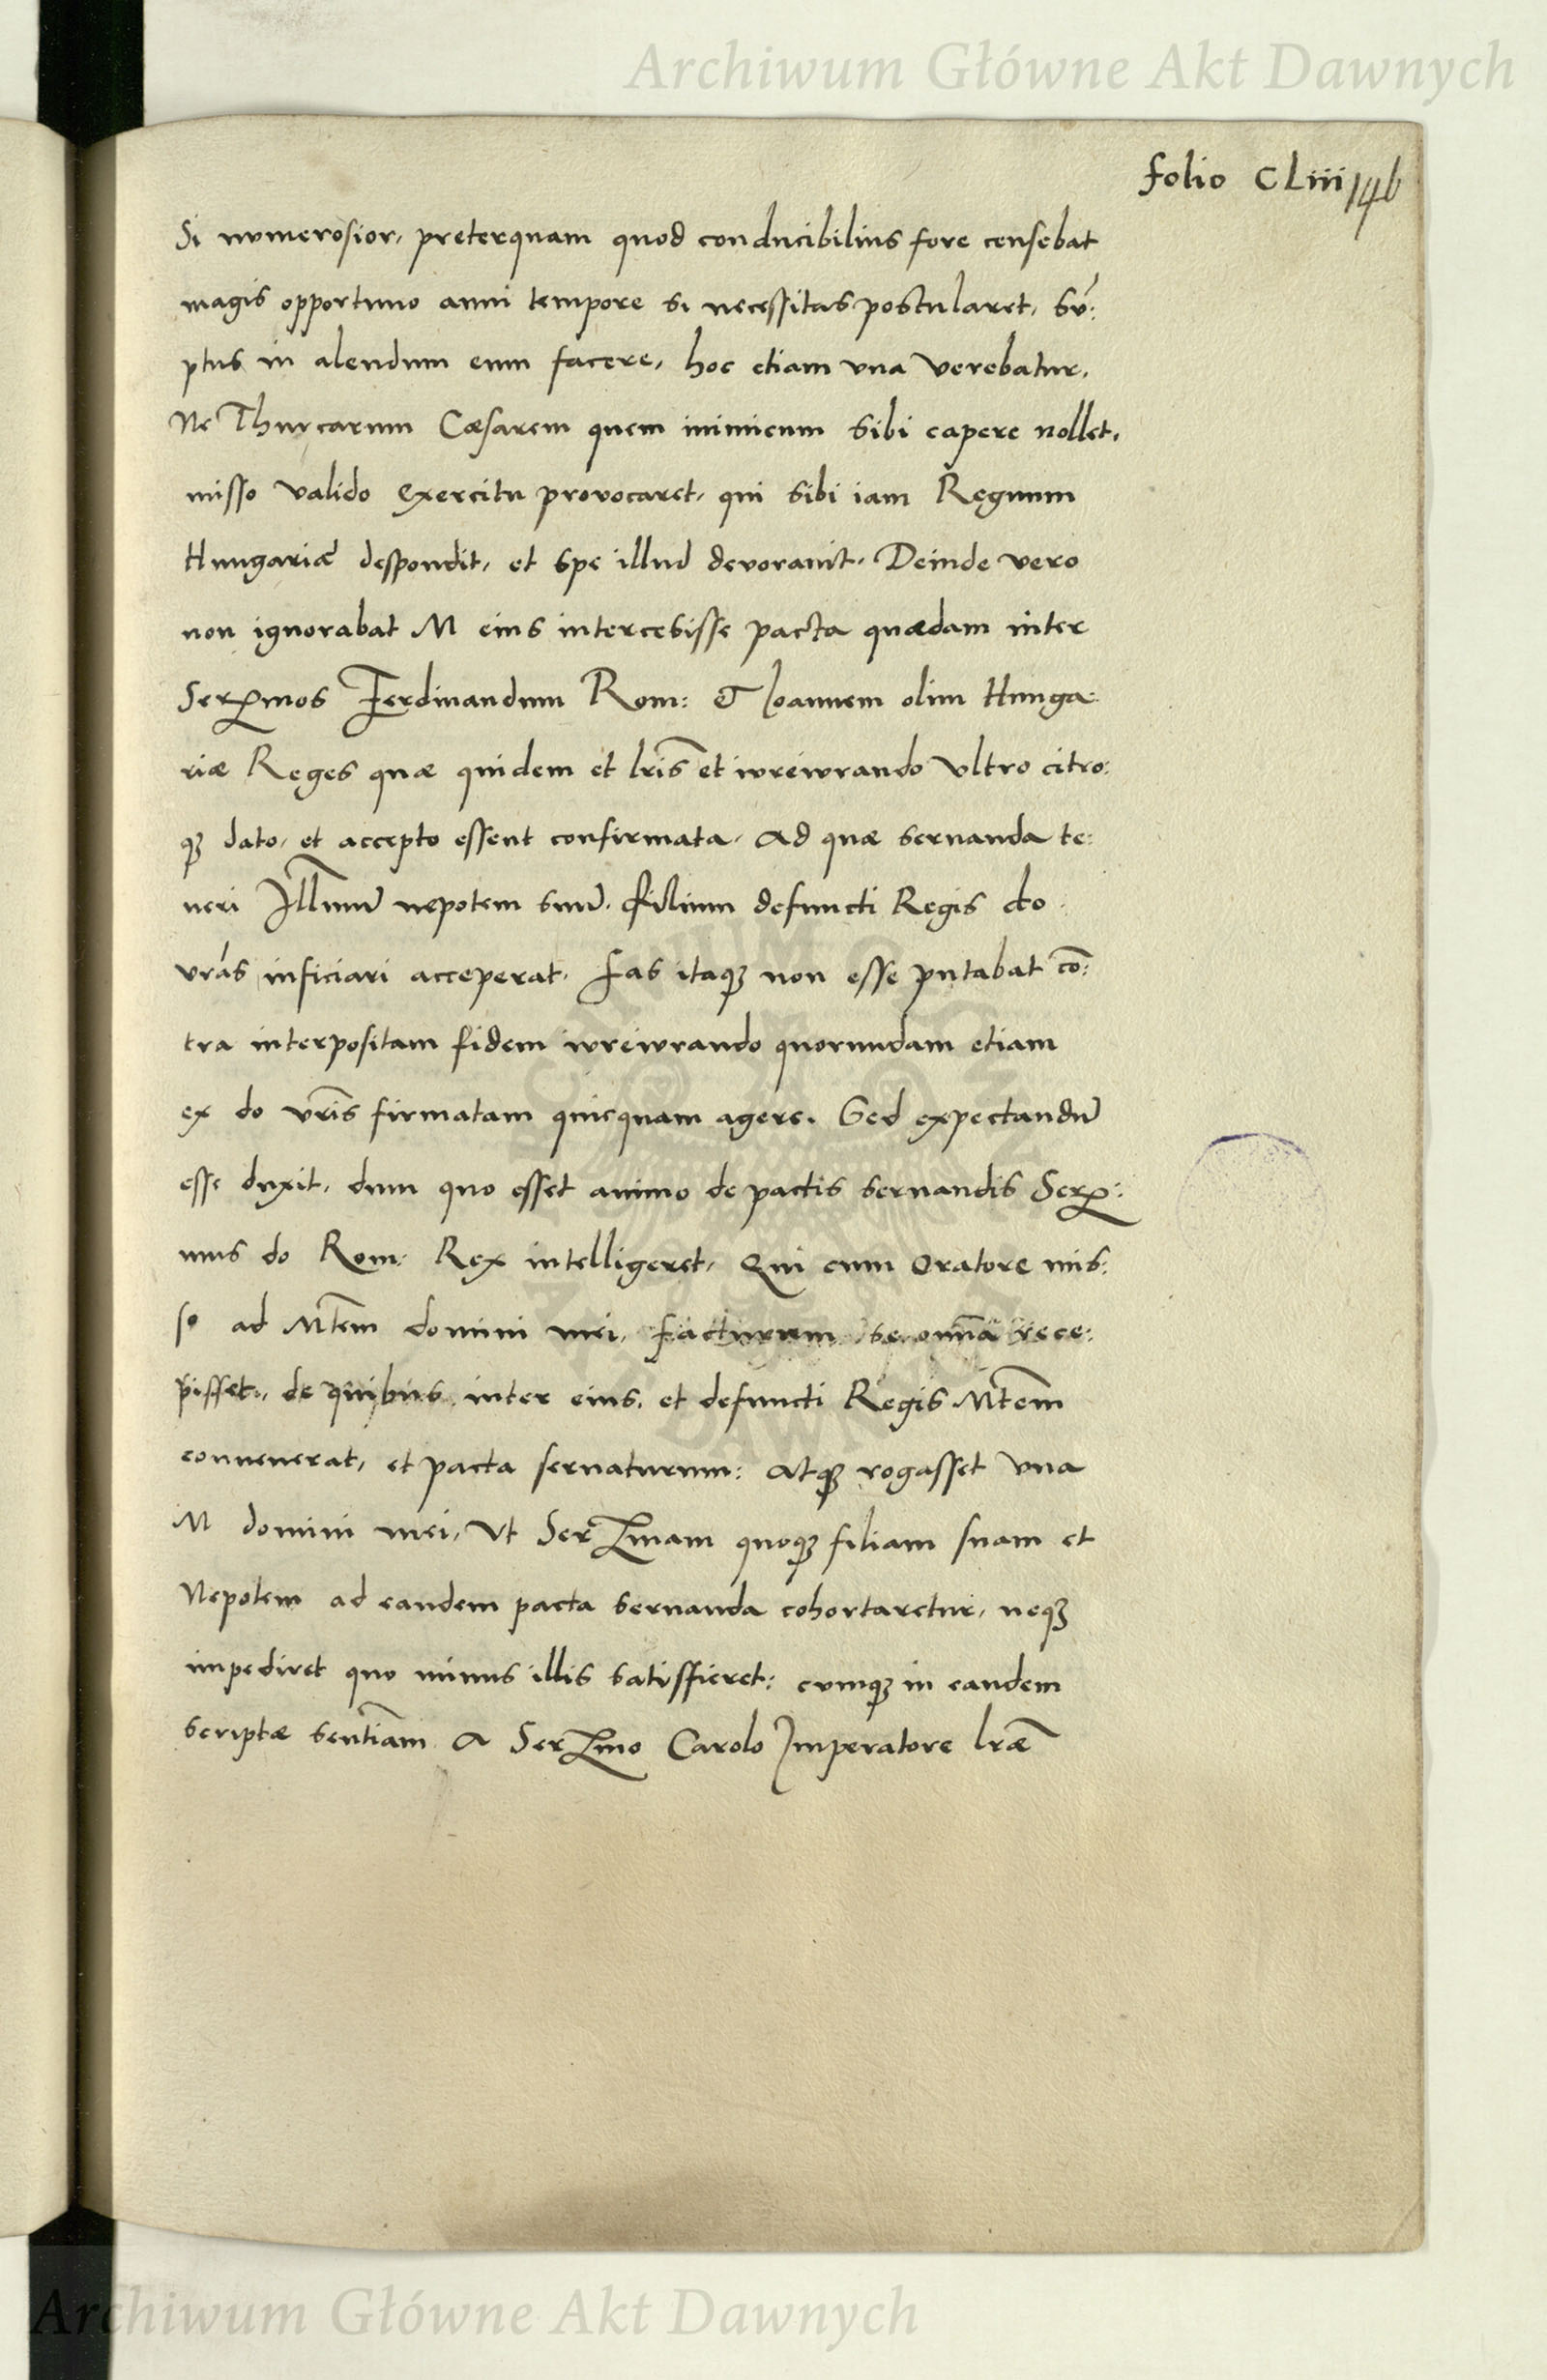 Archiwum Główne Akt Dawnych
folio CLiii 146
Si numerosior, preterquam quod conducibilius fore censebat
magis opportuno anni tempore si necessitas postularet, sũ:
ptus in alendum eum facere, hoc etiam una verebatur,
Ne Thurcarum Cæsarem quem inimicum sibi capere nollet,
misso valido exercitu provocaret, qui sibi iam Regnum
Hungariæ despondit, et spe illud devoravit. Deinde vero
non ignorabat M eius intercesisse pacta quædam inter
Serᵐmos Ferdinandum Rom: & Joannem olim Hunga:
riæ Reges quæ quidem et lr̃is et iureiurando ultro citro:
qȝ dato, et accepto essent confirmata, ad quæ servanda te:
neri Illm̃um nepotem suũ, filium defuncti Regis do
vr̃as inficiari acceperat. fas itaqȝ non esse putabat cõ:
tra interpositam fidem iureiurando quorundam etiam
ex do vr̃is firmatam quicquam agere. Sed expectandũ
esse duxit, dum quo esset animo de pactis servandis Ser:
mus do Rom: Rex intelligeret, Qui cum Oratore mis:
so ad Mtem domini mei, facturum se omnia rece:
pisset, de quibus inter eius, et defuncti Regis Mtem
convenerat, et pacta servaturum: Atqȝ rogasset una
M domini mei, Ut Sermam quoqȝ filiam suam et
Nepotem ad eandem pacta servanda cohortaretur, neqȝ
impediret quo minus illis satisfieret: cumqȝ in eandem
scriptæ sentiam a Sermo Carolo Imperatore lr̃æ
Archiwum Główne Akt Dawnych